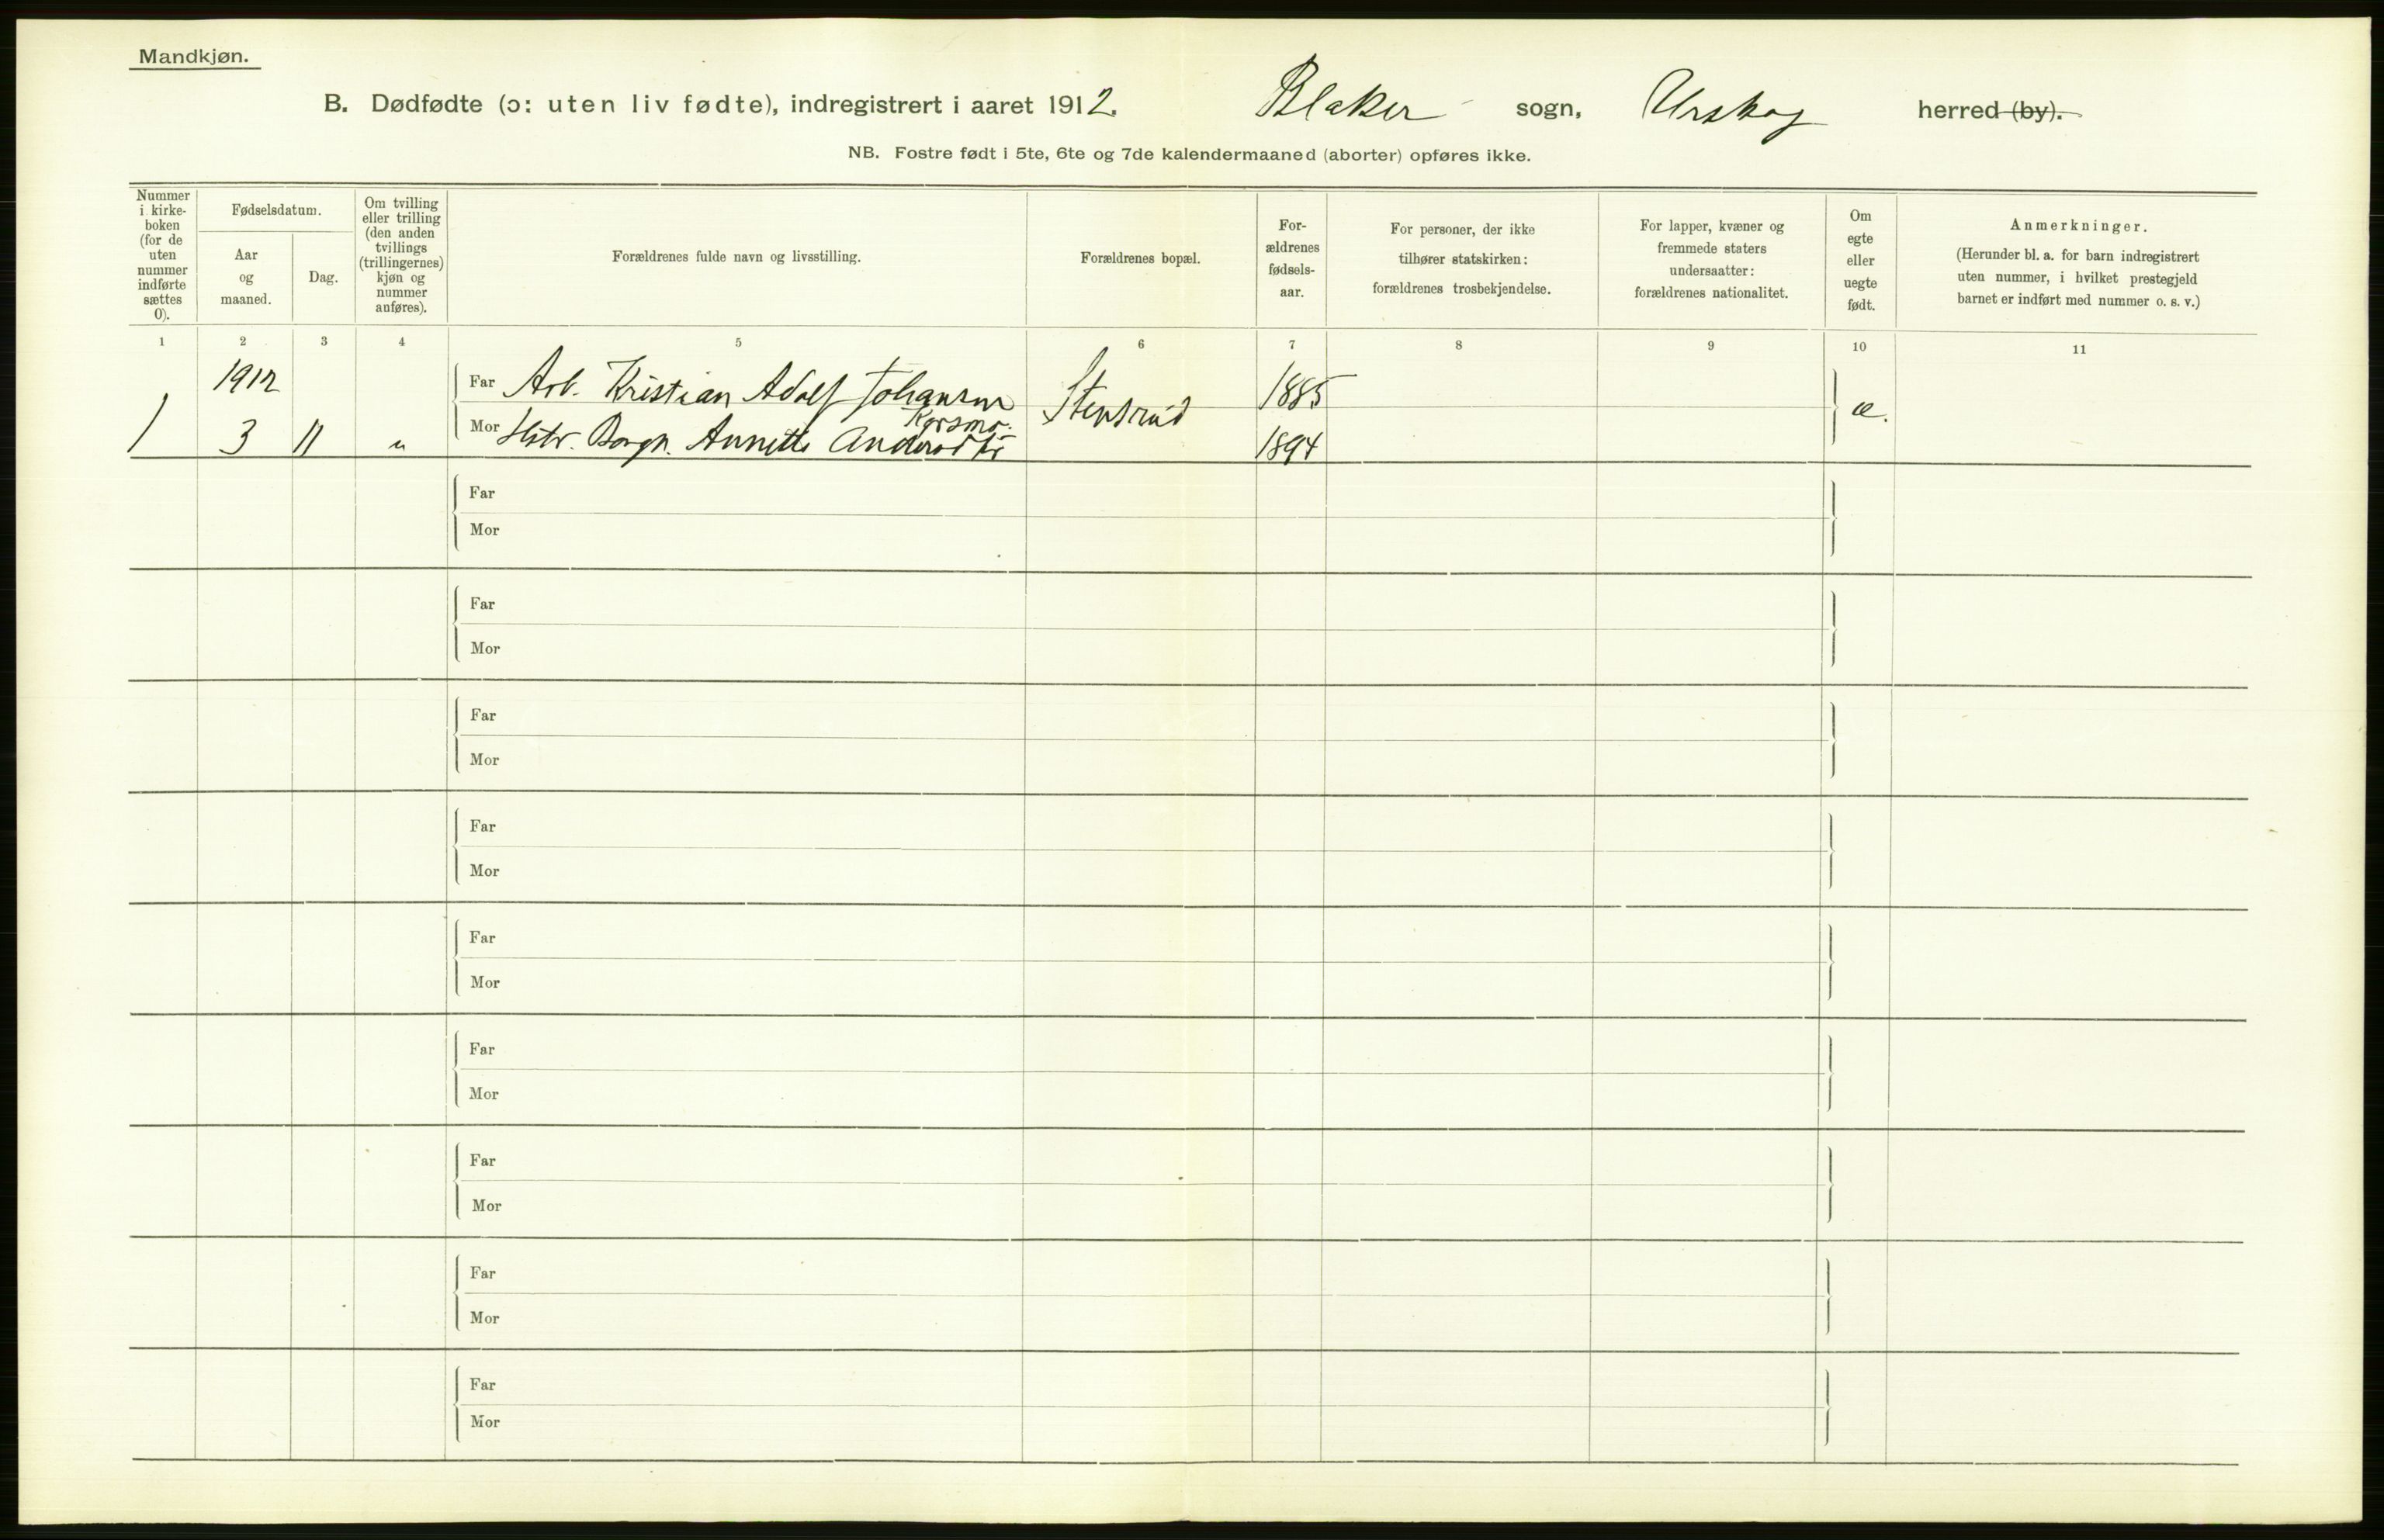 Mandkjøn.
B. Dødfødte (ɔ: uten liv fødte), indregistrert i aaret 1912. Blaker sogn, Urskog herred (by).
NB. Fostre født i 5te, 6te og 7de kalendermaaned (aborter) opføres ikke.
Nummer i kirke-boken (for de uten nummer indførte sættes 0).
Fødselsdatum.
Aar og maaned.
Dag.
Om tvilling eller trilling (den anden tvillings (trillingernes) kjøn og nummer anføres).
Forældrenes fulde navn og livsstilling.
Forældrenes bopæl.
For-ældrenes fødsels-aar.
For personer, der ikke tilhører statskirken: forældrenes trosbekjendelse.
For lapper, kvæner og fremmede staters undersaatter: forældrenes nationalitet.
Om egte eller uegte født.
Anmerkninger.
(Herunder bl. a. for barn indregistrert uten nummer, i hvilket prestegjeld barnet er indført med nummer o. s. v.)
1 2 3 4 5 6 7 8 9 10 11
1912
Far Arb. Kristian Adolf Johansen Stensrud 1885 æ.
Korsmo
1 3 11 " Mor Hstr. Annette 1894
Far
Mor
Far
Mor
Far
Mor
Far
Mor
Far
Mor
Far
Mor
Far
Mor
Far
Mor
Far
Mor